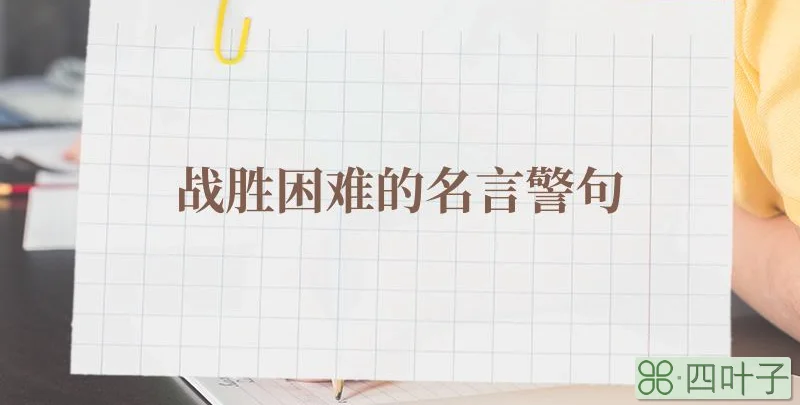 战胜困难的名言警句
四叶子